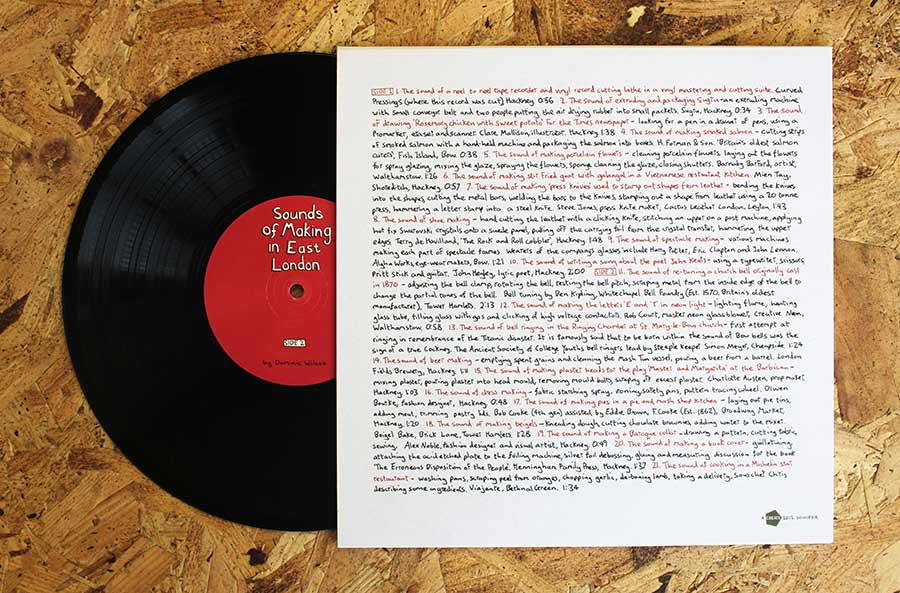 Sounds
of Making
in East
London
SIDE 2
by Dominic Wilcox
SIDE 1 1. The sound of a reel to reel tape recorder and vinyl record cutting lathe in a vinyl mastering and cutting suite. Curved
Pressings (where this record was cut) Hackney 0:56 2. The sound of extruding and packaging Sugru - an extruding machine
with small conveyor belt and two people putting the air drying rubber into small packets. Sugru, Hackney 0:34 3. The sound
of drawing 'Rosemary chicken with sweet potato' for the Times newspaper - looking for a pen in a drawer of pens, using a
Promarker, easel and scanner. Clare Mallison, illustrator. Hackney 1:38 4. The sound of making smoked salmon - cutting strips
of smoked salmon with a hand-held machine and packaging the salmon into boxes. H. Forman & Son. Britain's oldest salmon
curers, Fish Island, Bow. 0:38 5. The sound of making porcelain flowers - cleaning porcelain flowers, laying out the flowers
for spray glazing, mixing the glaze, spraying the flowers, sponge cleaning the glaze, closing shutters. Barnaby Barford, artist,
Walthamstow. 1:26 6. The sound of making stir fried goat with galangal in a Vietnamese restaurant kitchen. Mien Tay,
Shoreditch, Hackney. 0:57 7. The sound of making 'press knives' used to stamp out shapes from leather - bending the knives
into the shapes, cutting the metal bars, welding the bars to the knives, stamping out a shape from leather using a 20 tonne
press, hammering a letter stamp into a steel knife. Steve Jones, press knife maker, Curtis Leather London, Leyton 1:43
8. The sound of shoe making - hand cutting the leather with a clicking knife, stitching an upper on a post machine, applying
hot fix Swarovski crystals onto a suede panel, pulling off the carrying foil from the crystal transfer, hammering the upper
edges. Terry de Havilland, 'The Rock and Roll Cobbler', Hackney 1:48 9. The sound of spectacle making - various machines
making each part of spectacle frames. Wearers of the company's glasses include Harry Potter, Eric Clapton and John Lennon.
Algha Works, eye-wear makers, Bow. 1:21 10. The sound of writing a song about the poet John Keats - using a typewriter, scissors,
Pritt stick and guitar. John Hegley, lyric poet, Hackney 2:00 SIDE 2 11. The sound of re-tuning a church bell originally cast
in 1870 - adjusting the bell clamp, rotating the bell, testing the bell pitch, scraping metal from the inside edge of the bell to
change the partial tones of the bell. Bell tuning by Ben Kipling, Whitechapel Bell Foundry (Est. 1570, Britain's oldest
manufacturer), Tower Hamlets. 2:13 12. The sound of making the letters 'E' and 'T' in neon light - lighting flame, bending
glass tube, filling glass with gas and clicking of high voltage contactor. Rob Court, master neon glass blower, Creative Neon,
Walthamstow. 0:58 13. The sound of bell ringing in the Ringing Chamber at St. Mary-le-Bow church - first attempt at
ringing in remembrance of the Titanic disaster. It is famously said that to be born within the sound of Bow bells was the
sign of a true Cockney. The Ancient Society of College Youths bell ringers lead by steeple keeper Simon Meyer, Cheapside. 1:24
14. The sound of beer making - emptying spent grains and cleaning the Mash Tun vessel, pouring a beer from a barrel. London
Fields Brewery, Hackney, 1:11 15. The sound of making plaster heads for the play 'Master and Margarita' at the Barbican -
mixing plaster, pouring plaster into head mould, removing mould bolts, scraping off excess plaster. Charlotte Austen, prop maker,
Hackney 1:03 16. The sound of dress making - fabric starching spray, ironing, safety pins, pattern tracing wheel. Olwen
Bourke, fashion designer, Hackney 0:48 17. The sound of making pies in a pie and mash shop kitchen - laying out pie tins,
adding meat, trimming pastry lids. Bob Cooke (4th gen) assisted by Eddie Brown, F. Cooke (Est. 1862), Broadway Market,
Hackney, 1:20 18. The sound of making beigels - kneading dough, cutting chocolate brownies, adding water to the mixer.
Beigel Bake, Brick Lane, Tower Hamlets 1:28 19. The sound of making a Baroque collar - drawing a pattern, cutting fabric,
sewing. Alex Noble, fashion designer and visual artist, Hackney, 0:49 20. The sound of making a book cover - guillotining,
attaching the acid etched plate to the foiling machine, silver foil debossing, gluing and measuring discussion for the book
'The Erroneous Disposition of the People'. Henningham Family Press, Hackney, 1:37 21. The sound of cooking in a Michelin star
restaurant - washing pans, scraping peel from oranges, chopping garlic, de-boning lamb, taking a delivery, sous chef Chris
describing some ingredients. Viajante, Bethnal Green. 1:34
A CREATE 2012 COMMISSION